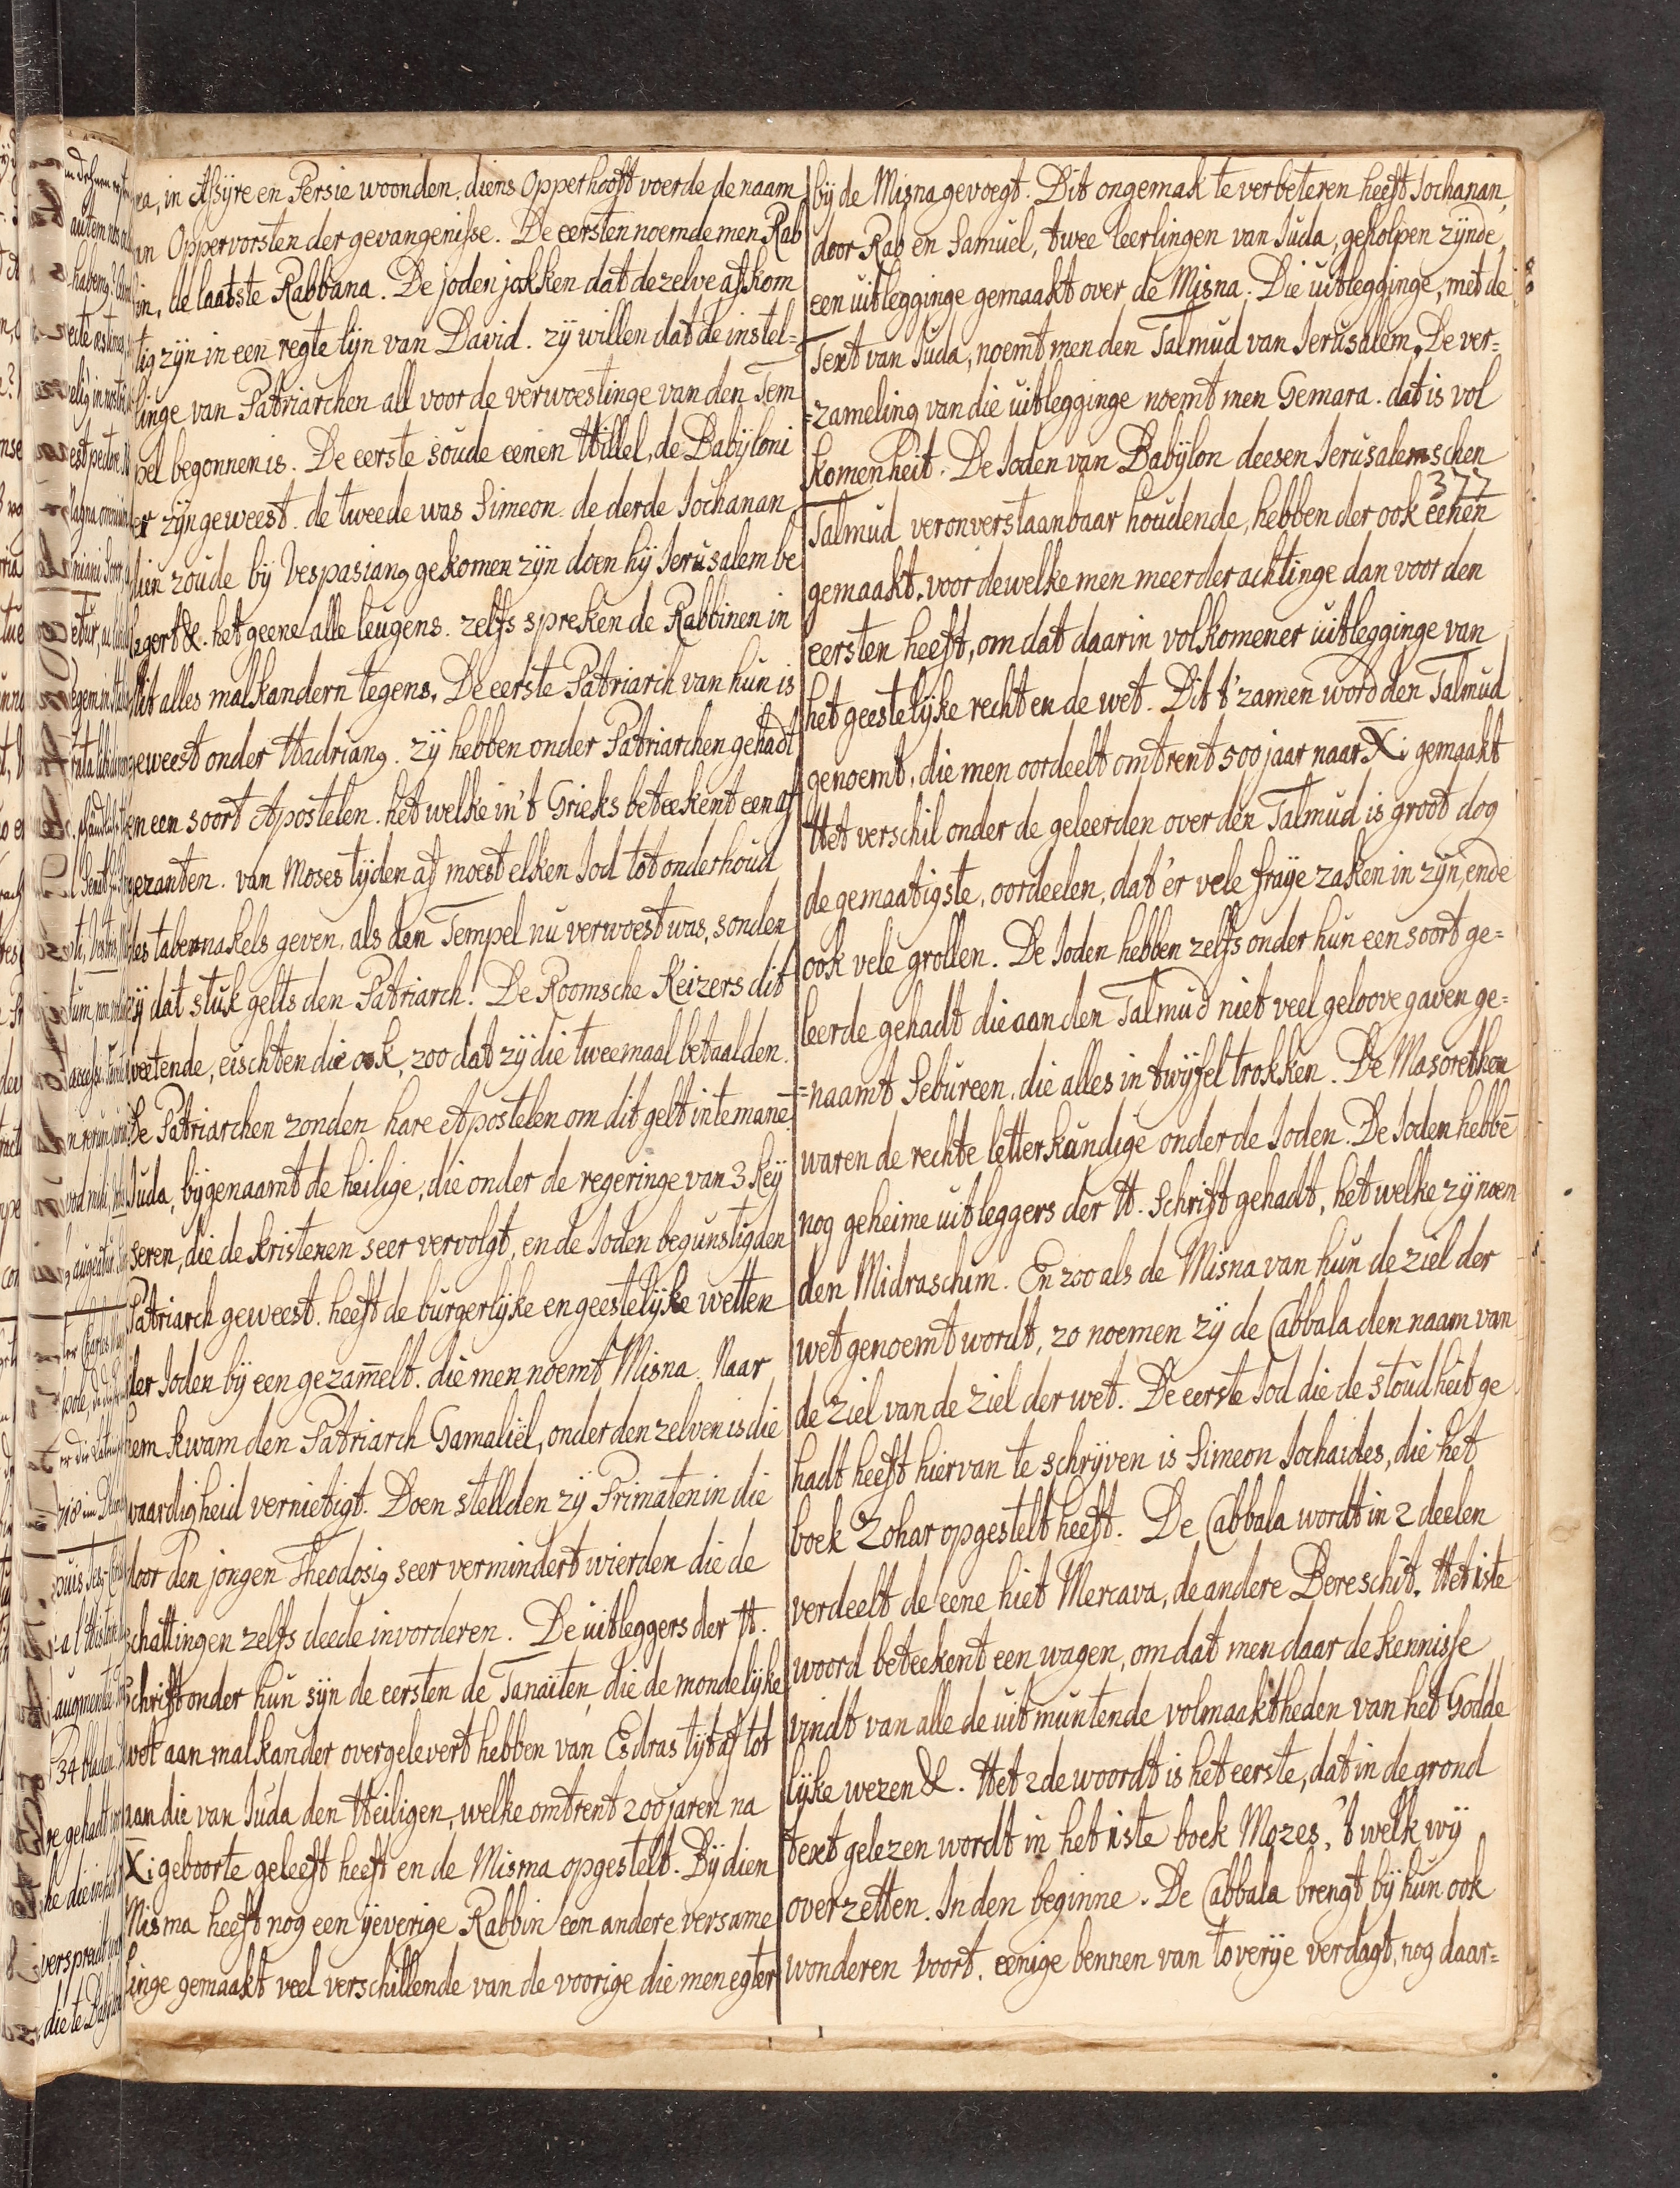 in Assyre en Persie woonden. diens Opperhooft voerde de naam
Oppervorsten der gevangenisse. De eersten noemde men Rab
de laatste Rabbana. De joden jokken dat dezelve afkom
tig zyn in een regte lyn van David. zy willen dat de instel=
linge van Patriarchen all voor de verwoestinge van den Tem
pel begonnen is. De eerste soude eenen Hillel, de Babyloni
er zyn geweest. de tweede was Simeon. de derde Jochanan,
dien zoude by Vespasiang gekomen zyn doen hy Jerusalem be
legert &. het geene alle leugens. zelfs spreken de Rabbinen in
dit alles malkandern tegens. De eerste Patriarch van hun is
geweest onder Hadriang. zy hebben onder Patriarchen gehadt
een soort Apostelen. het welke in't Grieks beteekent een af
gezanten. van Moses tyden af moest elken Jod tot onderhoud
des tabernakels geven. als den Tempel nu verwoest was, sonden
zy dat stuk gelts den Patriarch. De Roomsche Keizers dit
weetende, eischten die ook, zoo dat zy die tweemaal betaalden.
De Patriarchen zonden hare Apostelen om dit gelt in te manē
Juda, bygenaamt de heilige, die onder de regeringe van 3 Key
seren, die de kristenen seer vervolgt, en de Joden begunstigden
Patriarch geweest. heeft de burgerlyke en geestelyke wetten
der Joden by een gezam̄elt. die men noemt Misna. Naar
hem kwam den Patriarch Gamaliël, onder den zelven is die
waardigheid vernietigt. Doen stellden zy Primaten in die
door den jongen Theodosig seer vermindert wierden die de
schattingen zelfs deede invorderen. De uitleggers der H.
Schrift onder hun syn de eersten de Tanaiten, die de mondelyke
wet aan malkander overgelevert hebben van Esdras tyt af tot
aan die van Juda den Heiligen, welke omtrent 200 jaren na
Xi geboorte geleeft heeft en de Misma opgestelt. By dien
Misma heeft nog een yeverige Rabbin een andere versame
linge gemaakt veel verschillende van de voorige die men egter
by de Misna gevoegt. Dit ongemak te verbeteren heeft Jochanan,
door Rab en Samuel, twee leerlingen van Juda, geholpen zynde,
een uitlegginge gemaakt over de Misna. Die uitlegginge, met de
Text van Juda, noemt men den Talmud van Jerusalem. De ver=
=zameling van die uitlegginge noemt men Gemara. dat is vol
komenheit. De Joden van Babylon deesen Jerusalemschen
377
Talmud veronverstaanbaar houdende, hebben der ook eenen
gemaakt, voor dewelke men meerder achtinge dan voor den
eersten heeft, om dat daarin volkomener uitlegginge van
het geestelyke recht en de wet. Dit t'zamen word den Talmud
genoemt, die men oordeelt omtrent 500 jaar naar Xi gemaakt
Het verschil onder de geleerden over den Talmud is groot dog
de gemaatigste, oordeelen, dat'er vele fraye zaken in zyn, ende
ook vele grollen. De Joden hebben zelfs onder hun een soort ge=
leerde gehadt die aan den Talmud niet veel geloove gaven ge=
=naamt Sebureen, die alles in twyfel trokken. De Masorethen
waren de rechte letterkundige onder de Joden. De Joden hebbē
nog geheime uitleggers der H. Schrift gehadt, het welke zy noem
den Midraschim. En zoo als de Misna van hun de ziel der
wet genoemt wordt, zo noemen zy de Cabbala den naam van
de ziel van de ziel der wet. De eerste Jod die de stoudheit ge
hadt heeft hiervan te schryven is Simeon Jochaides, die het
boek Zohar opgestelt heeft. De Cabbala wordt in 2 deelen
verdeelt de eene hiet Mercava, de andere Bereschit. Het iste
woord beteekent een wagen, om dat men daar de kennisse
vindt van alle de uitmuntende volmaaktheden van het Godde
lyke wezen &. Het 2de woordt is het eerste, dat in de grond
text gelezen wordt in het iste boek Mozes, 't welk wy
overzetten. In den beginne. De Cabbala brengt by hun ook
wonderen voort. eenige bennen van toverye verdagt, nog daar=